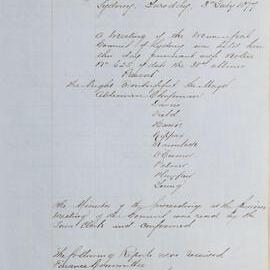 Sydney, Tuesday, 3rd July 1877
A Meeting of the Municipal
Council of Sydney was held here
this day pursuant with Notice
No 625 of date the 30th ultimo
Present
The Right Worshipful the Mayor
Aldermen Chapman
Davies
Field
Palmer
Playfair
Young
The Minutes of the proceedings at the previous
Meeting of the Council was read by the
Town Clerk and confirmed
The following Reports were received
Finance Committee